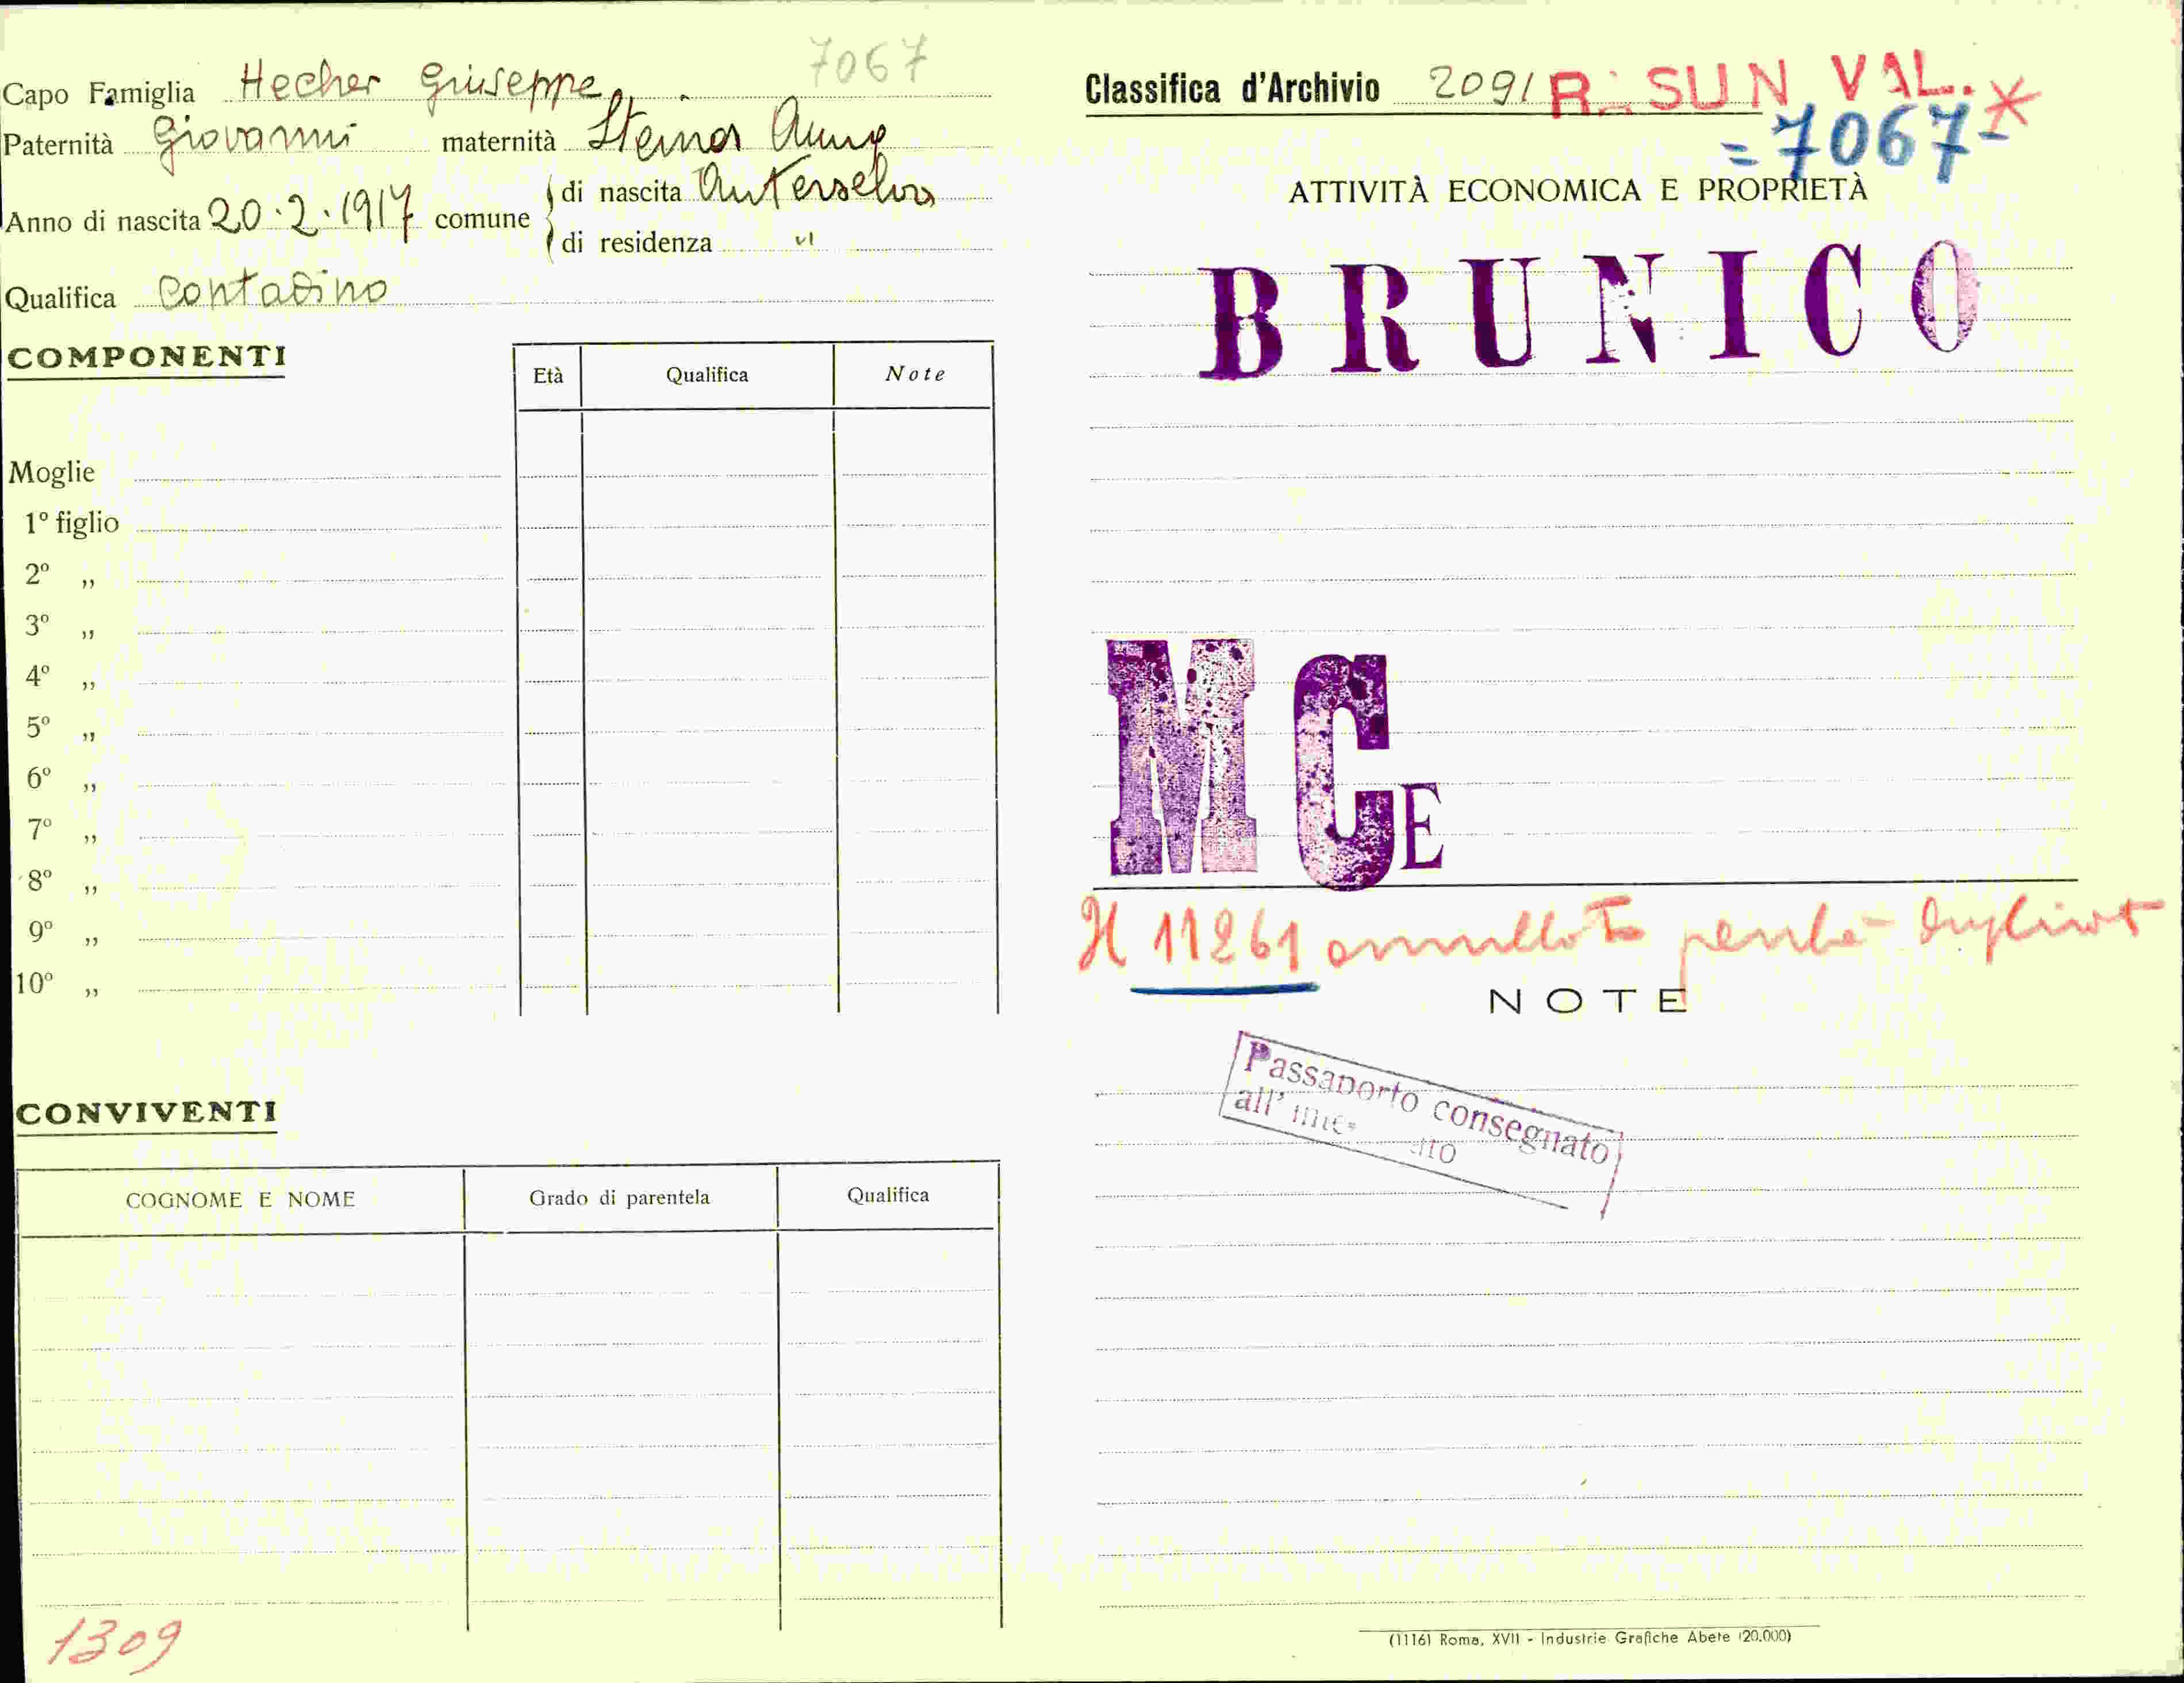 7067
Capo Famiglia Hecher Giuseppe
Paternità Giovanni maternità Steiner Anna
Anno di nascita 20.2.1917 comune di nascita Anterselva
di residenza "
Qualifica Contadino
COMPONENTI
Età Qualifica Note
Moglie
1º figlio
2º „
3º „
4º „
5º „
6º „
7º „
8º „
9º „
10º „
CONVIVENTI
COGNOME E NOME Grado di parentela Qualifica
1309
Classifica d'Archivio 2091 R. SUN VAL.
= 7067 -
ATTIVITÀ ECONOMICA E PROPRIETÀ
BRUNICO
M C E
Il 11261 annullato perchè
NOTE
Passaporto consegnato
all'
(1116) Roma, XVII - Industrie Grafiche Abete (20.000)